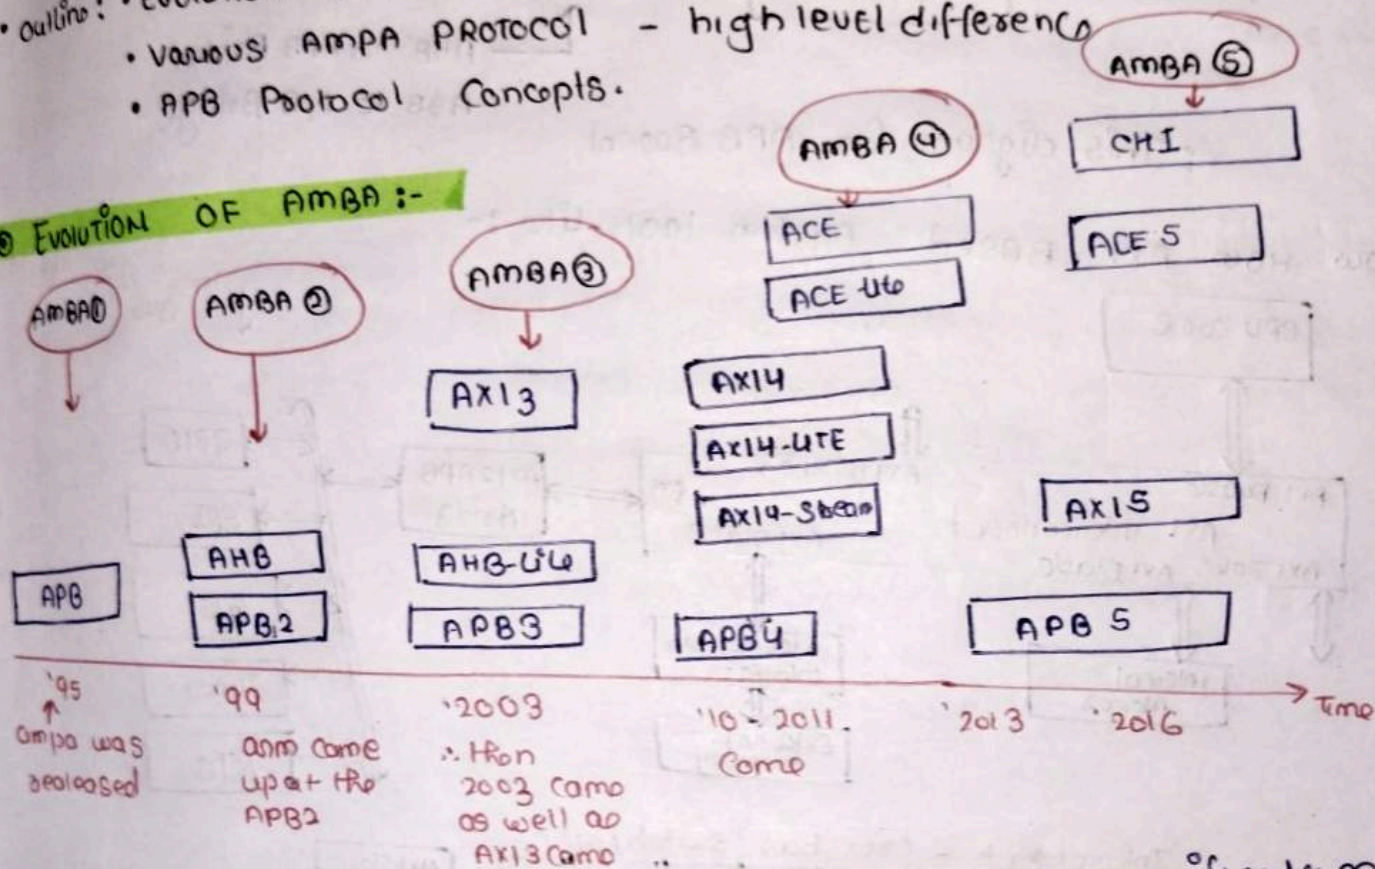 • outline : •
• various AMPA PROTOCOL - high level difference
• APB Protocol Concepts.
EVOLUTION OF AMBA :-
AMBA ①
AMBA ②
AMBA ③
AMBA ④
AMBA ⑤
CHI
ACE
ACE 5
ACE-Lite
AXI3
AXI4
AXI4-LITE
AXI4-Stream
AXI5
AHB
AHB-Lite
APB
APB2
APB3
APB4
APB 5
'95
'99
'2003
'10 - 2011.
'2013
'2016
Time
↑
ampa was
realeased
arm came
up at the
APB2
∴ then
2003 came
as well as
AXI3 came
Come